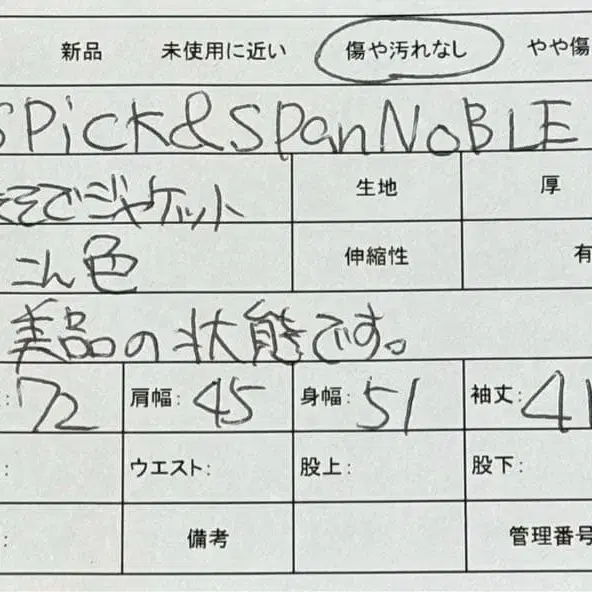 新品 未使用に近い 傷や汚れなし やや傷
SPick&SpanNoBLE
そでジャケット 生地 厚
こん色 伸縮性 有
美品の状態です。
: 72 肩幅: 45 身幅: 51 袖丈: 41
: ウエスト: 股上: 股下:
: 備考 管理番号